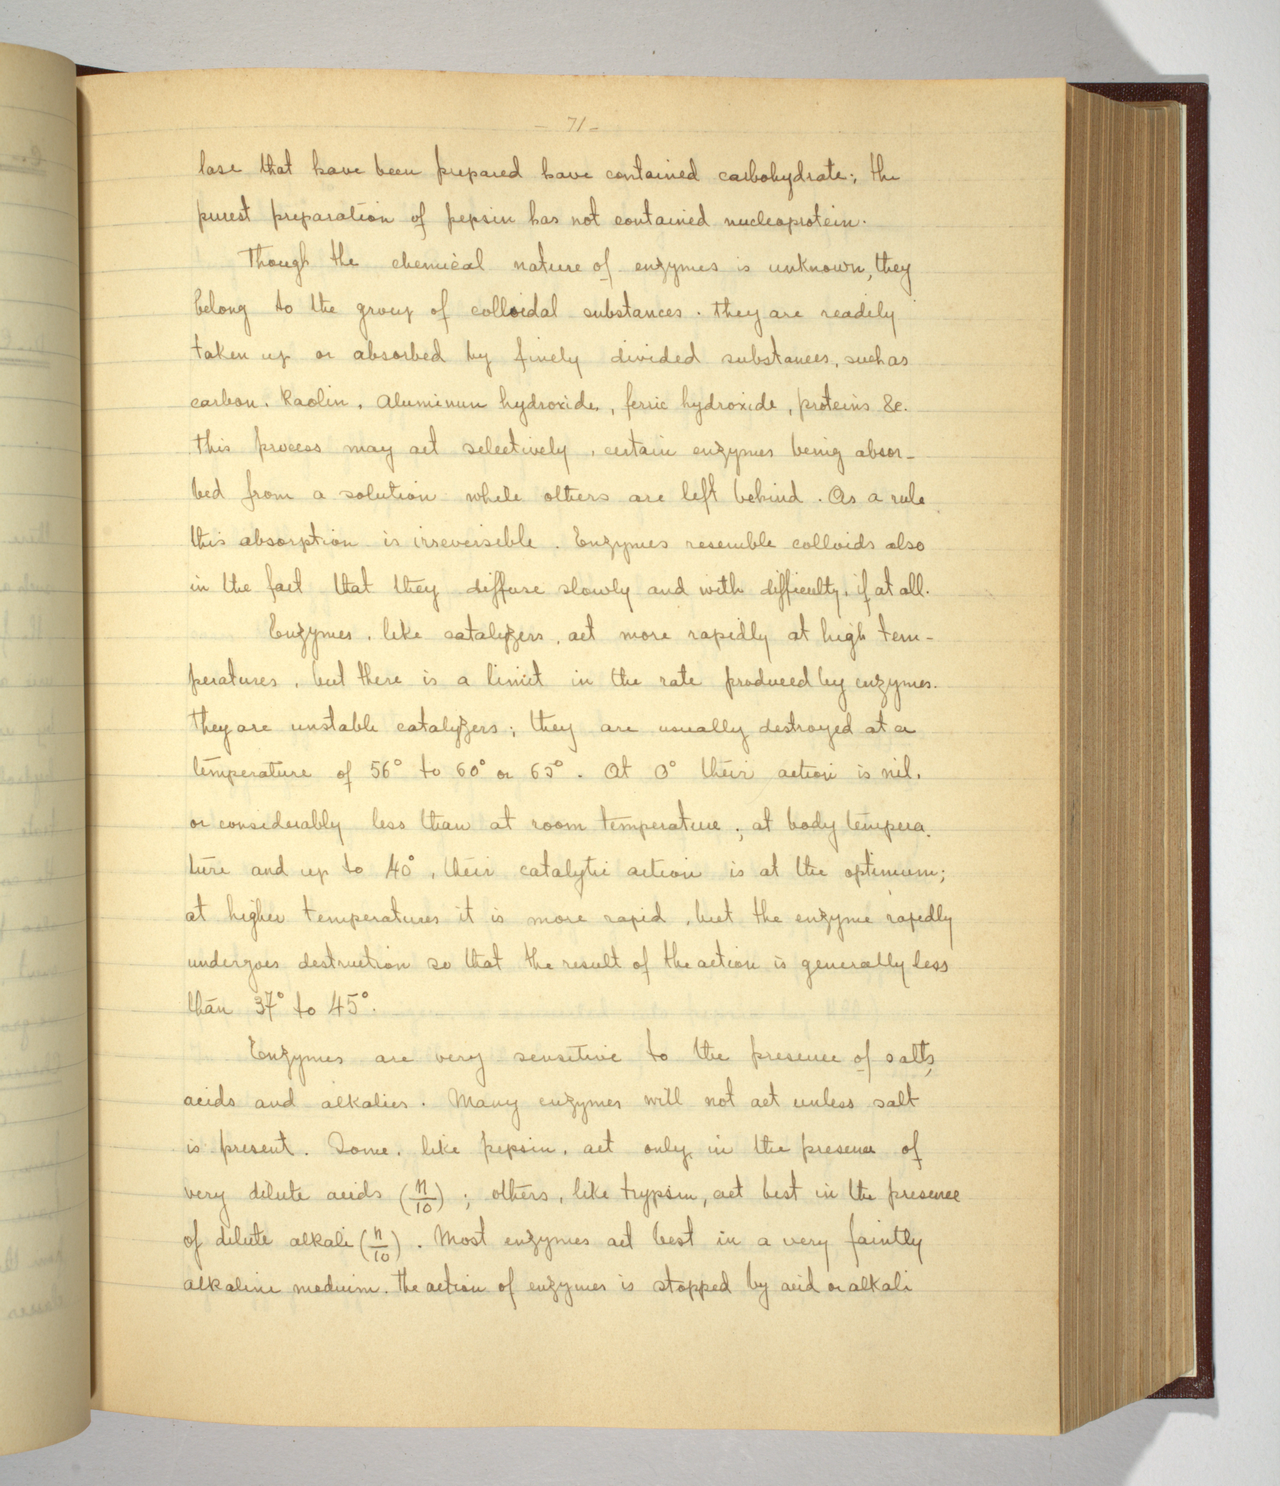 - 71 -
lase that have been prepared have contained carbohydrate; the
purest preparation of pepsin has not contained nucleoprotein.
Though the chemical nature of enzymes is unknown, they
belong to the group of colloidal substances. They are readily
taken up or absorbed by finely divided substances, such as
carbon, Kaolin, Aluminun hydroxide, ferric hydroxide, proteins &c.
This process may act selectively, certain enzymes being absor-
bed from a solution while others are left behind. As a rule
this absorption is irreversible. Enzymes resemble colloids also
in the fact that they diffuse slowly and with difficulty, if at all.
Enzymes, like catalyzers, act more rapidly at high tem-
peratures, but there is a limit in the rate produced by enzymes.
They are unstable catalyzers; they are usually destroyed at a
temperature of 56° to 60° or 65°. At 0° their action is nil,
or considerably less than at room temperature; at body tempera-
ture and up to 40°, their catalytic action is at the optimum;
at higher temperatures it is more rapid, but the enzyme rapidly
undergoes destruction so that the result of the action is generally less
than 37° to 45°.
Enzymes are very sensitive to the presence of salts,
acids and alkalies. Many enzymes will not act unless salt
is present. Some, like pepsin, act only in the presence of
very dilute acids (n/10); others, like trypsin, act best in the presence
of dilute alkali (n/10). Most enzymes act best in a very faintly
alkaline medium. The action of enzymes is stopped by acid or alkali